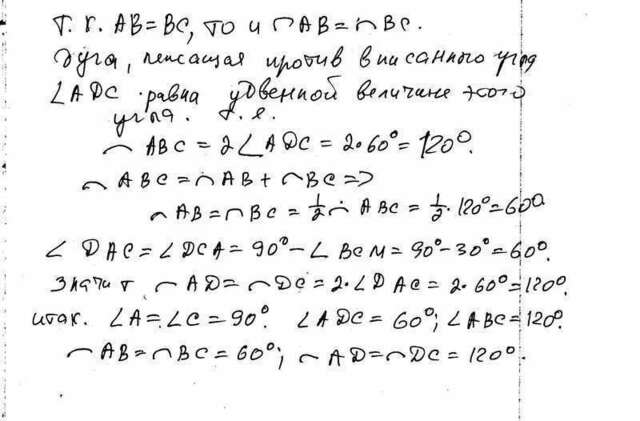 Т.к. AB=BC, то и ◠AB=◠BC.
Дуга, лежащая против вписанного угла
∠ADC равна удвенной величине этого
угла. т.е.
◠ABC=2∠ADC=2·60°=120°.
◠ABC=◠AB+◠BC=>
◠AB=◠BC=1/2◠ABC=1/2·120°=60°
∠DAC=∠DCA=90°-∠BCM=90°-30°=60°.
Значит ◠AD=◠DC=2·∠DAC=2·60°=120°.
итак. ∠A=∠C=90°. ∠ADC=60°; ∠ABC=120°.
◠AB=◠BC=60°; ◠AD=◠DC=120°.